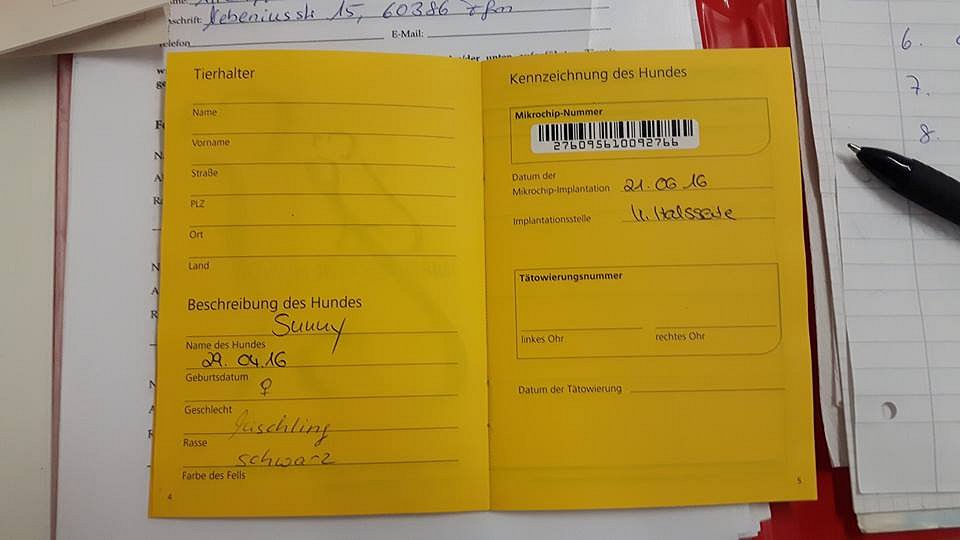 schrift: Nebeniusstr 15, 60386 Ffm
Telefon E-Mail:
Tierhalter
Name
Vorname
Straße
PLZ
Ort
Land
Beschreibung des Hundes
Sunny
Name des Hundes
29.04.16
Geburtsdatum
♀
Geschlecht
Mischling
Rasse
schwarz
Farbe des Fells
4
Kennzeichnung des Hundes
Mikrochip-Nummer
276095610092766
Datum der
Mikrochip-Implantation 21.06.16
Implantationsstelle li. Halsseite
Tätowierungsnummer
linkes Ohr rechtes Ohr
Datum der Tätowierung
5
6.
7.
8.